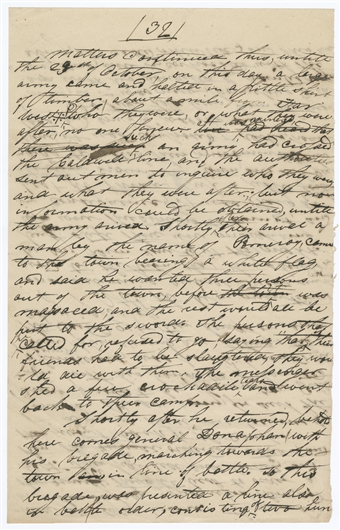 132
matters continued thus, untill
the 29 day of October, on this day a large
army came and halted in a little skirt
of timber, about a mile
west, who they were, or what they were
after, no one knew had heard that
there was such an army had crossed
the Caldwell line, and the authorities
sent out men to inquire who they were,
and what they were after; but no
information could be obtained, untill
the army arived. Shortly after arivel a
man by the name of Pomeroy, came
to the town, bearing a white flag
and said he wanted three persons
out of the town, before was
masacced, and the rest would all be
put to the sword. The persons they
called for refused to go saying that if their
friends had to be slaughtered, they would
die with them. The messenger
shed a few crockadile tears and went
back to their camp.
Shortly after he returned, behold
here comes general Donaphan, with
his brigade, marching towards the
town in line of battle, to this
brigade, was presented a line also
in battle older, consisting of two hun